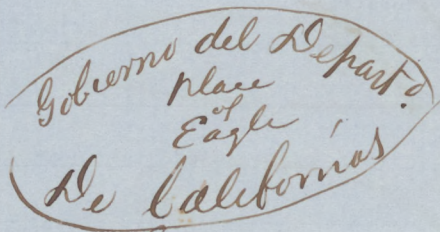 Gobierno del Departo.
place
of
Eagle
De Californias